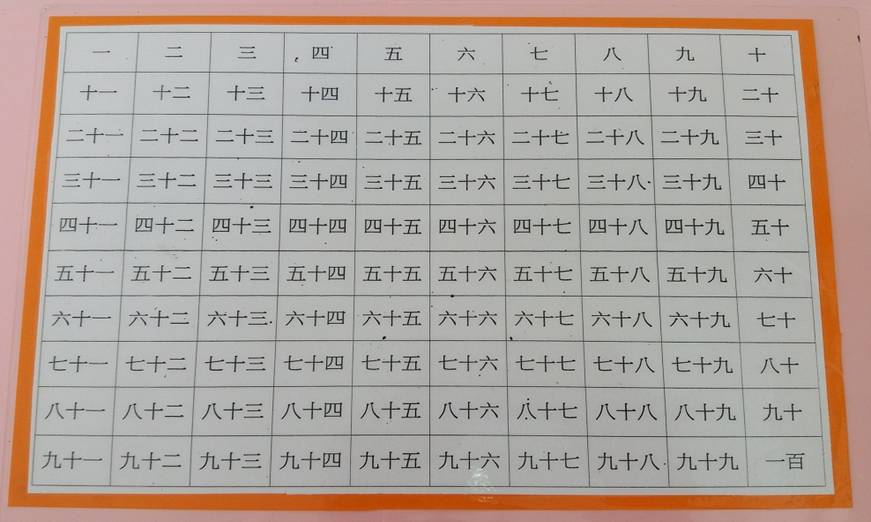 一 二 三 四 五 六 七 八 九 十
十一 十二 十三 十四 十五 十六 十七 十八 十九 二十
二十一 二十二 二十三 二十四 二十五 二十六 二十七 二十八 二十九 三十
三十一 三十二 三十三 三十四 三十五 三十六 三十七 三十八 三十九 四十
四十一 四十二 四十三 四十四 四十五 四十六 四十七 四十八 四十九 五十
五十一 五十二 五十三 五十四 五十五 五十六 五十七 五十八 五十九 六十
六十一 六十二 六十三 六十四 六十五 六十六 六十七 六十八 六十九 七十
七十一 七十二 七十三 七十四 七十五 七十六 七十七 七十八 七十九 八十
八十一 八十二 八十三 八十四 八十五 八十六 八十七 八十八 八十九 九十
九十一 九十二 九十三 九十四 九十五 九十六 九十七 九十八 九十九 一百